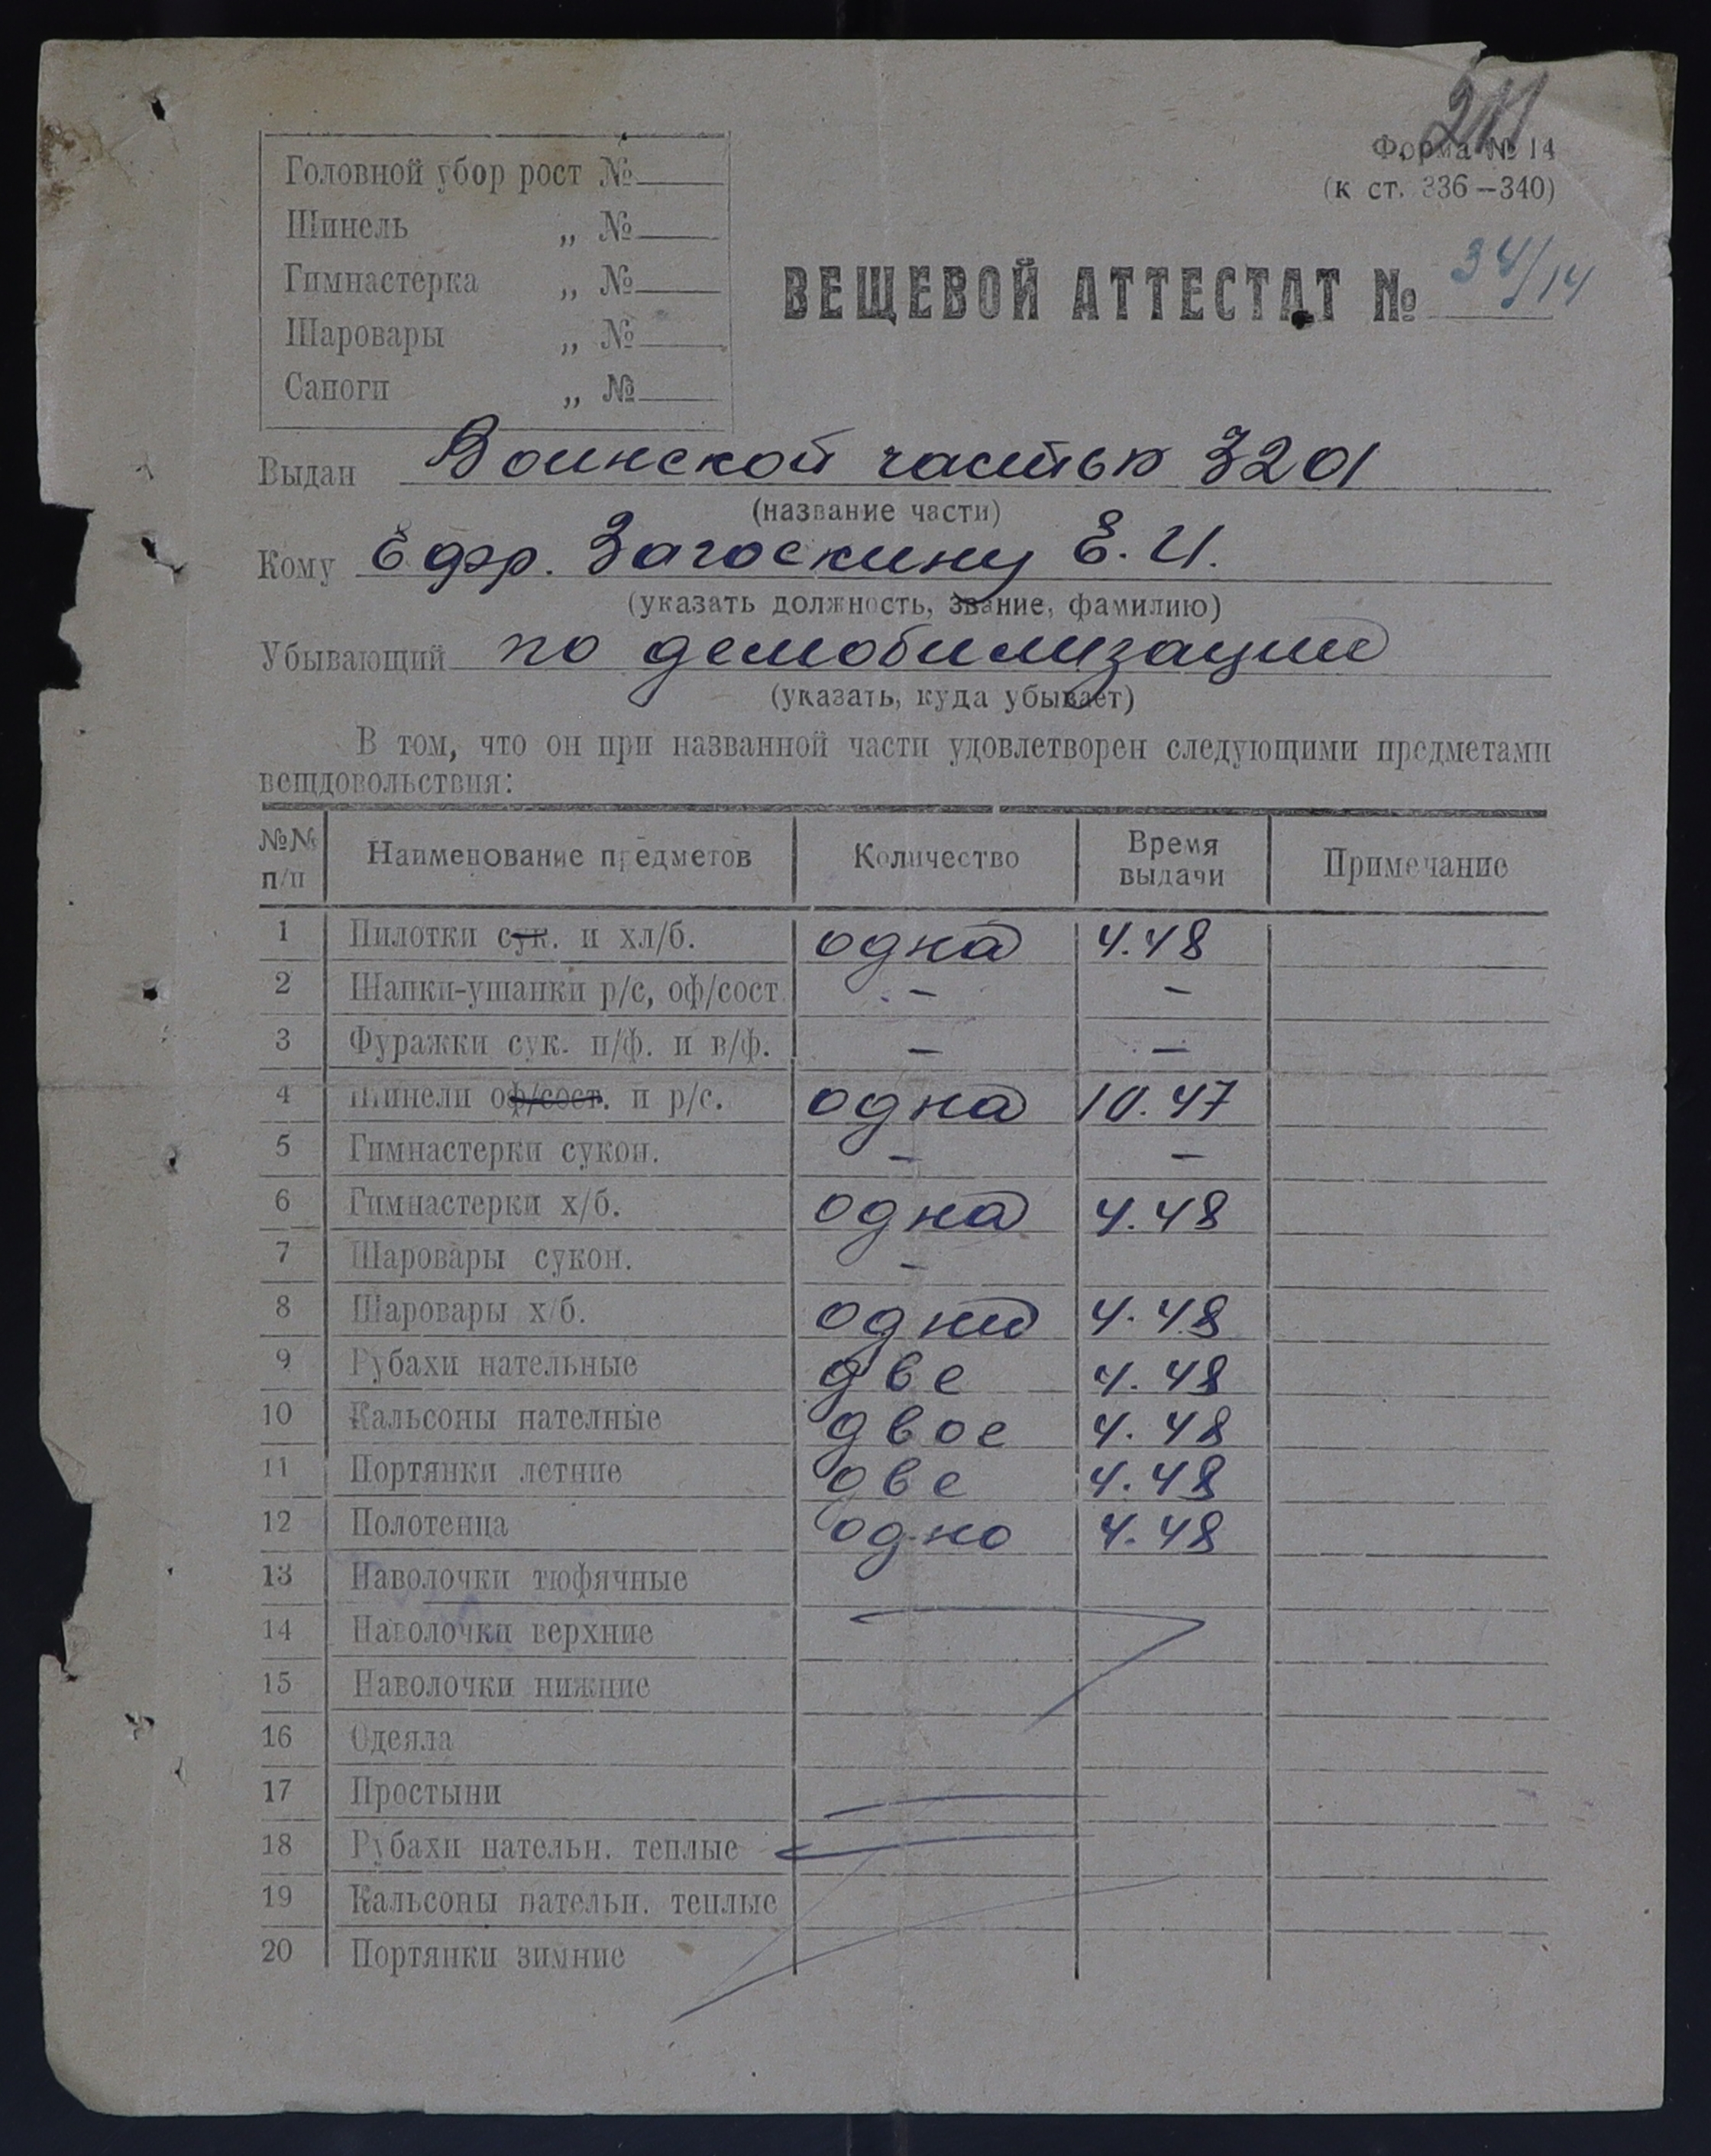 Форма № 14
(к ст. 336—340)
Головной убор рост №
Шинель „ №
Гимнастерка „ №
Шаровары „ №
Сапоги „ №
ВЕЩЕВОЙ АТТЕСТАТ № 34/14
Выдан Воинской частью 3201
(название части)
Кому Ефр. Загоскину Е. И.
(указать должность, звание, фамилию)
Убывающий по демобилизации
(указать, куда убывает)
В том, что он при названной части удовлетворен следующими предметами
вещдовольствия:
№№ п/п Наименование предметов Количество Время выдачи Примечание
1 Пилотки сук. и хл/б. одна 4.48
2 Шапки-ушанки р/с, оф/сост. — —
3 Фуражки сук. п/ф. и в/ф. — —
4 Шинели оф/сост. и р/с. одна 10.47
5 Гимнастерки сукон. — —
6 Гимнастерки х/б. одна 4.48
7 Шаровары сукон. —
8 Шаровары х/б. одни 4.48
9 Рубахи нательные две 4.48
10 Кальсоны нателные двое 4.48
11 Портянки летние две 4.48
12 Полотенца одно 4.48
13 Наволочки тюфячные
14 Наволочки верхние
15 Наволочки нижние
16 Одеяла
17 Простыни
18 Рубахи нательн. теплые
19 Кальсоны нательн. теплые
20 Портянки зимние